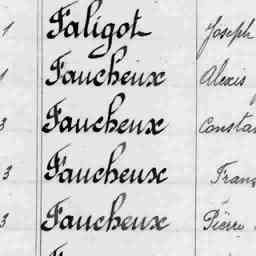 1 Faligot Joseph
1 Faucheux Alexis
3 Faucheux
3 Faucheux
3 Faucheux Pierre